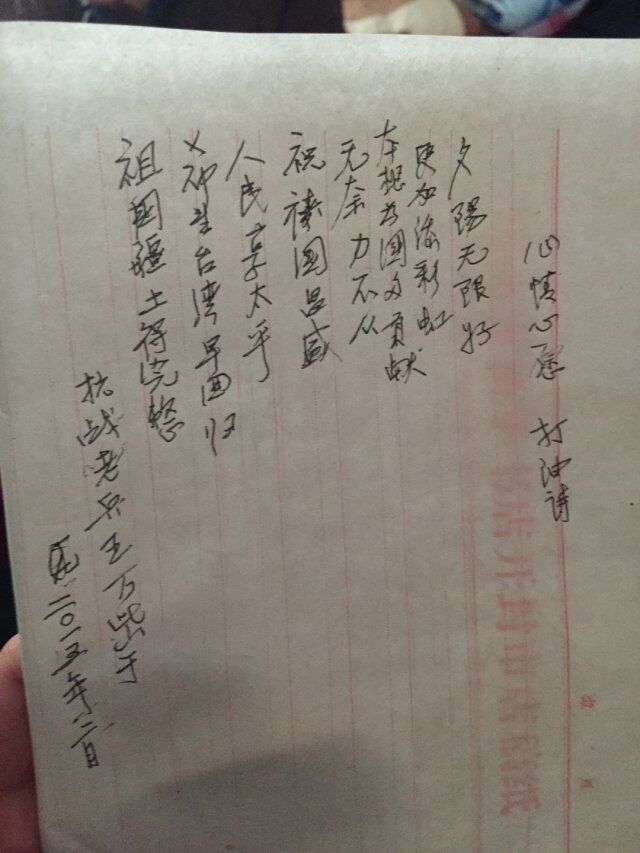 心情心愿 打油诗
夕陽无限好
更加添彩虹
本想为國多贡献
无奈力不从
祝祷國昌盛
人民享太平
又祈望台湾早回归
祖國疆土得完整
抗战老兵王万
二〇一五年二月
开封市
纸